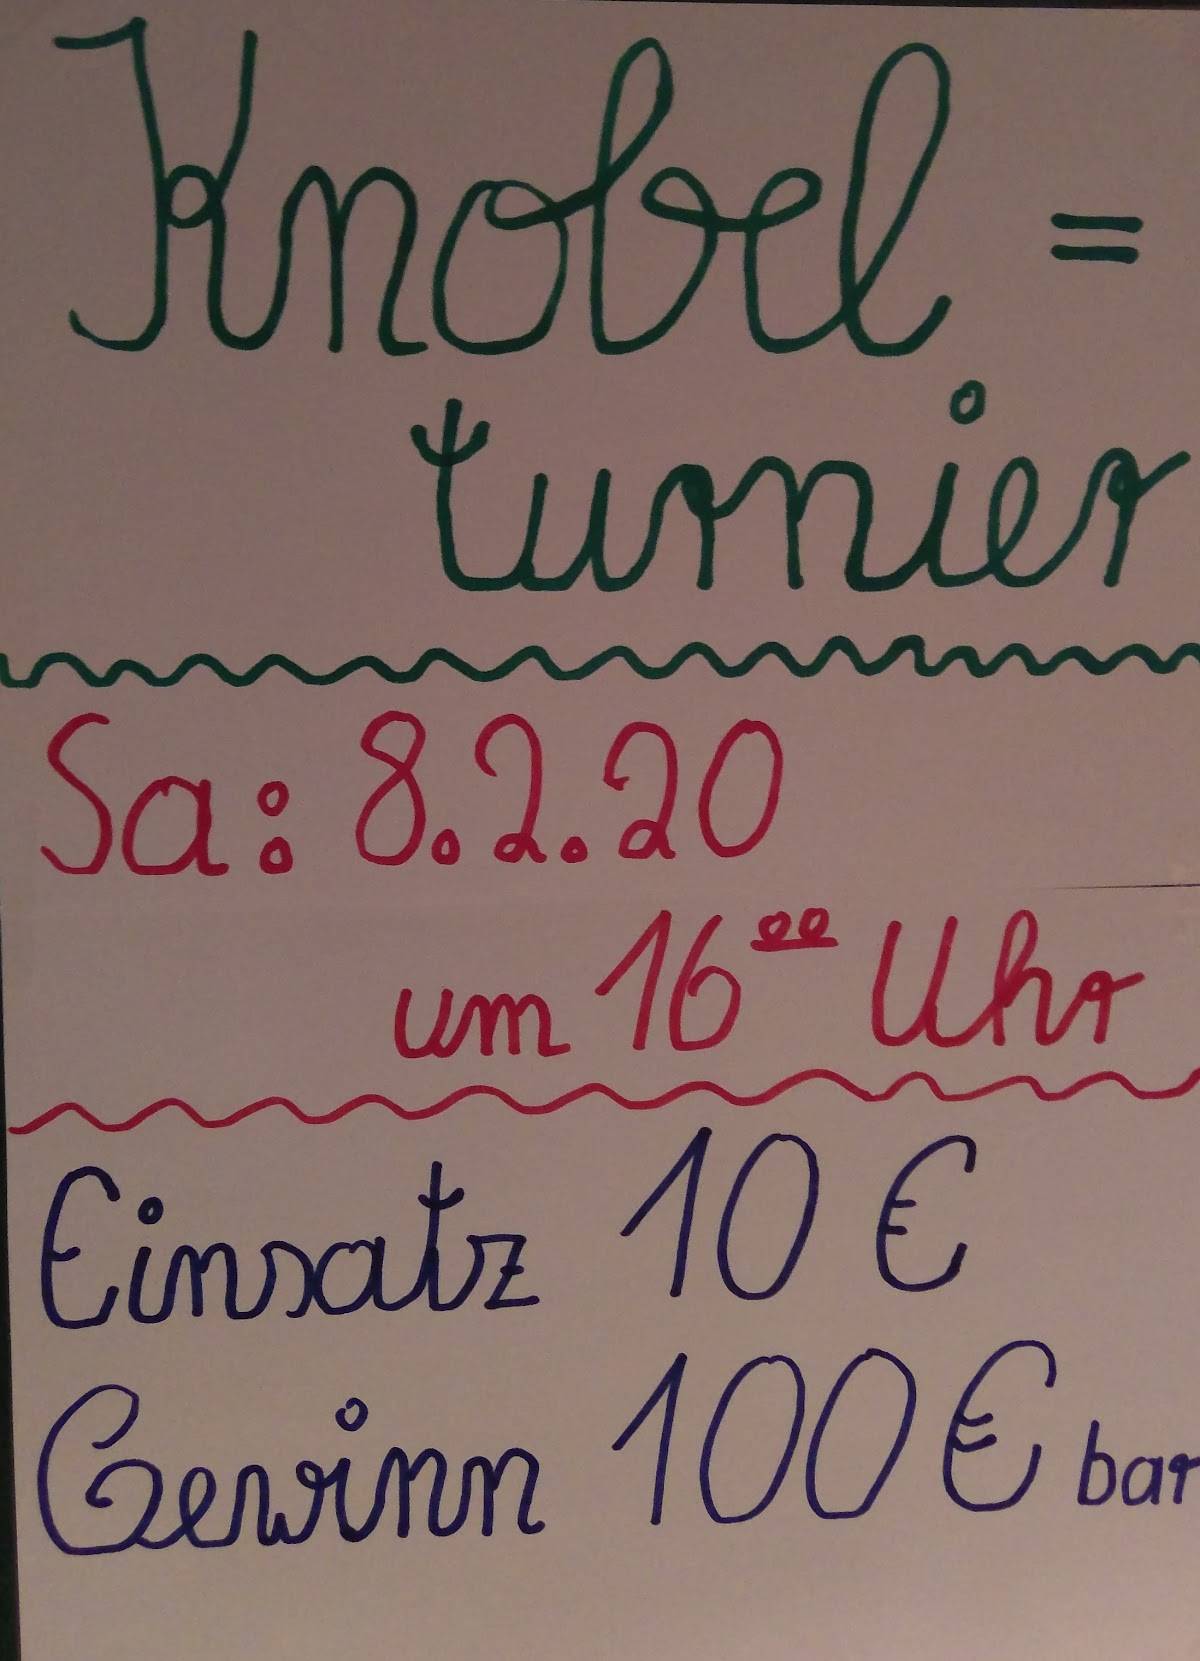 Knobel =
turnier
Sa: 8.2.20
um 16⁰⁰ Uhr
Einsatz 10 €
Gewinn 100 € bar